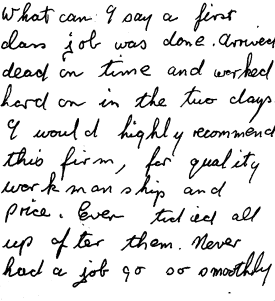 What can I say a first
class job was done. Arrived
dead on time and worked
hard on in the two days.
I would highly recommend
this firm, for quality
work man ship and
price. Even tidied all
up after them. Never
had a job go so smoothly